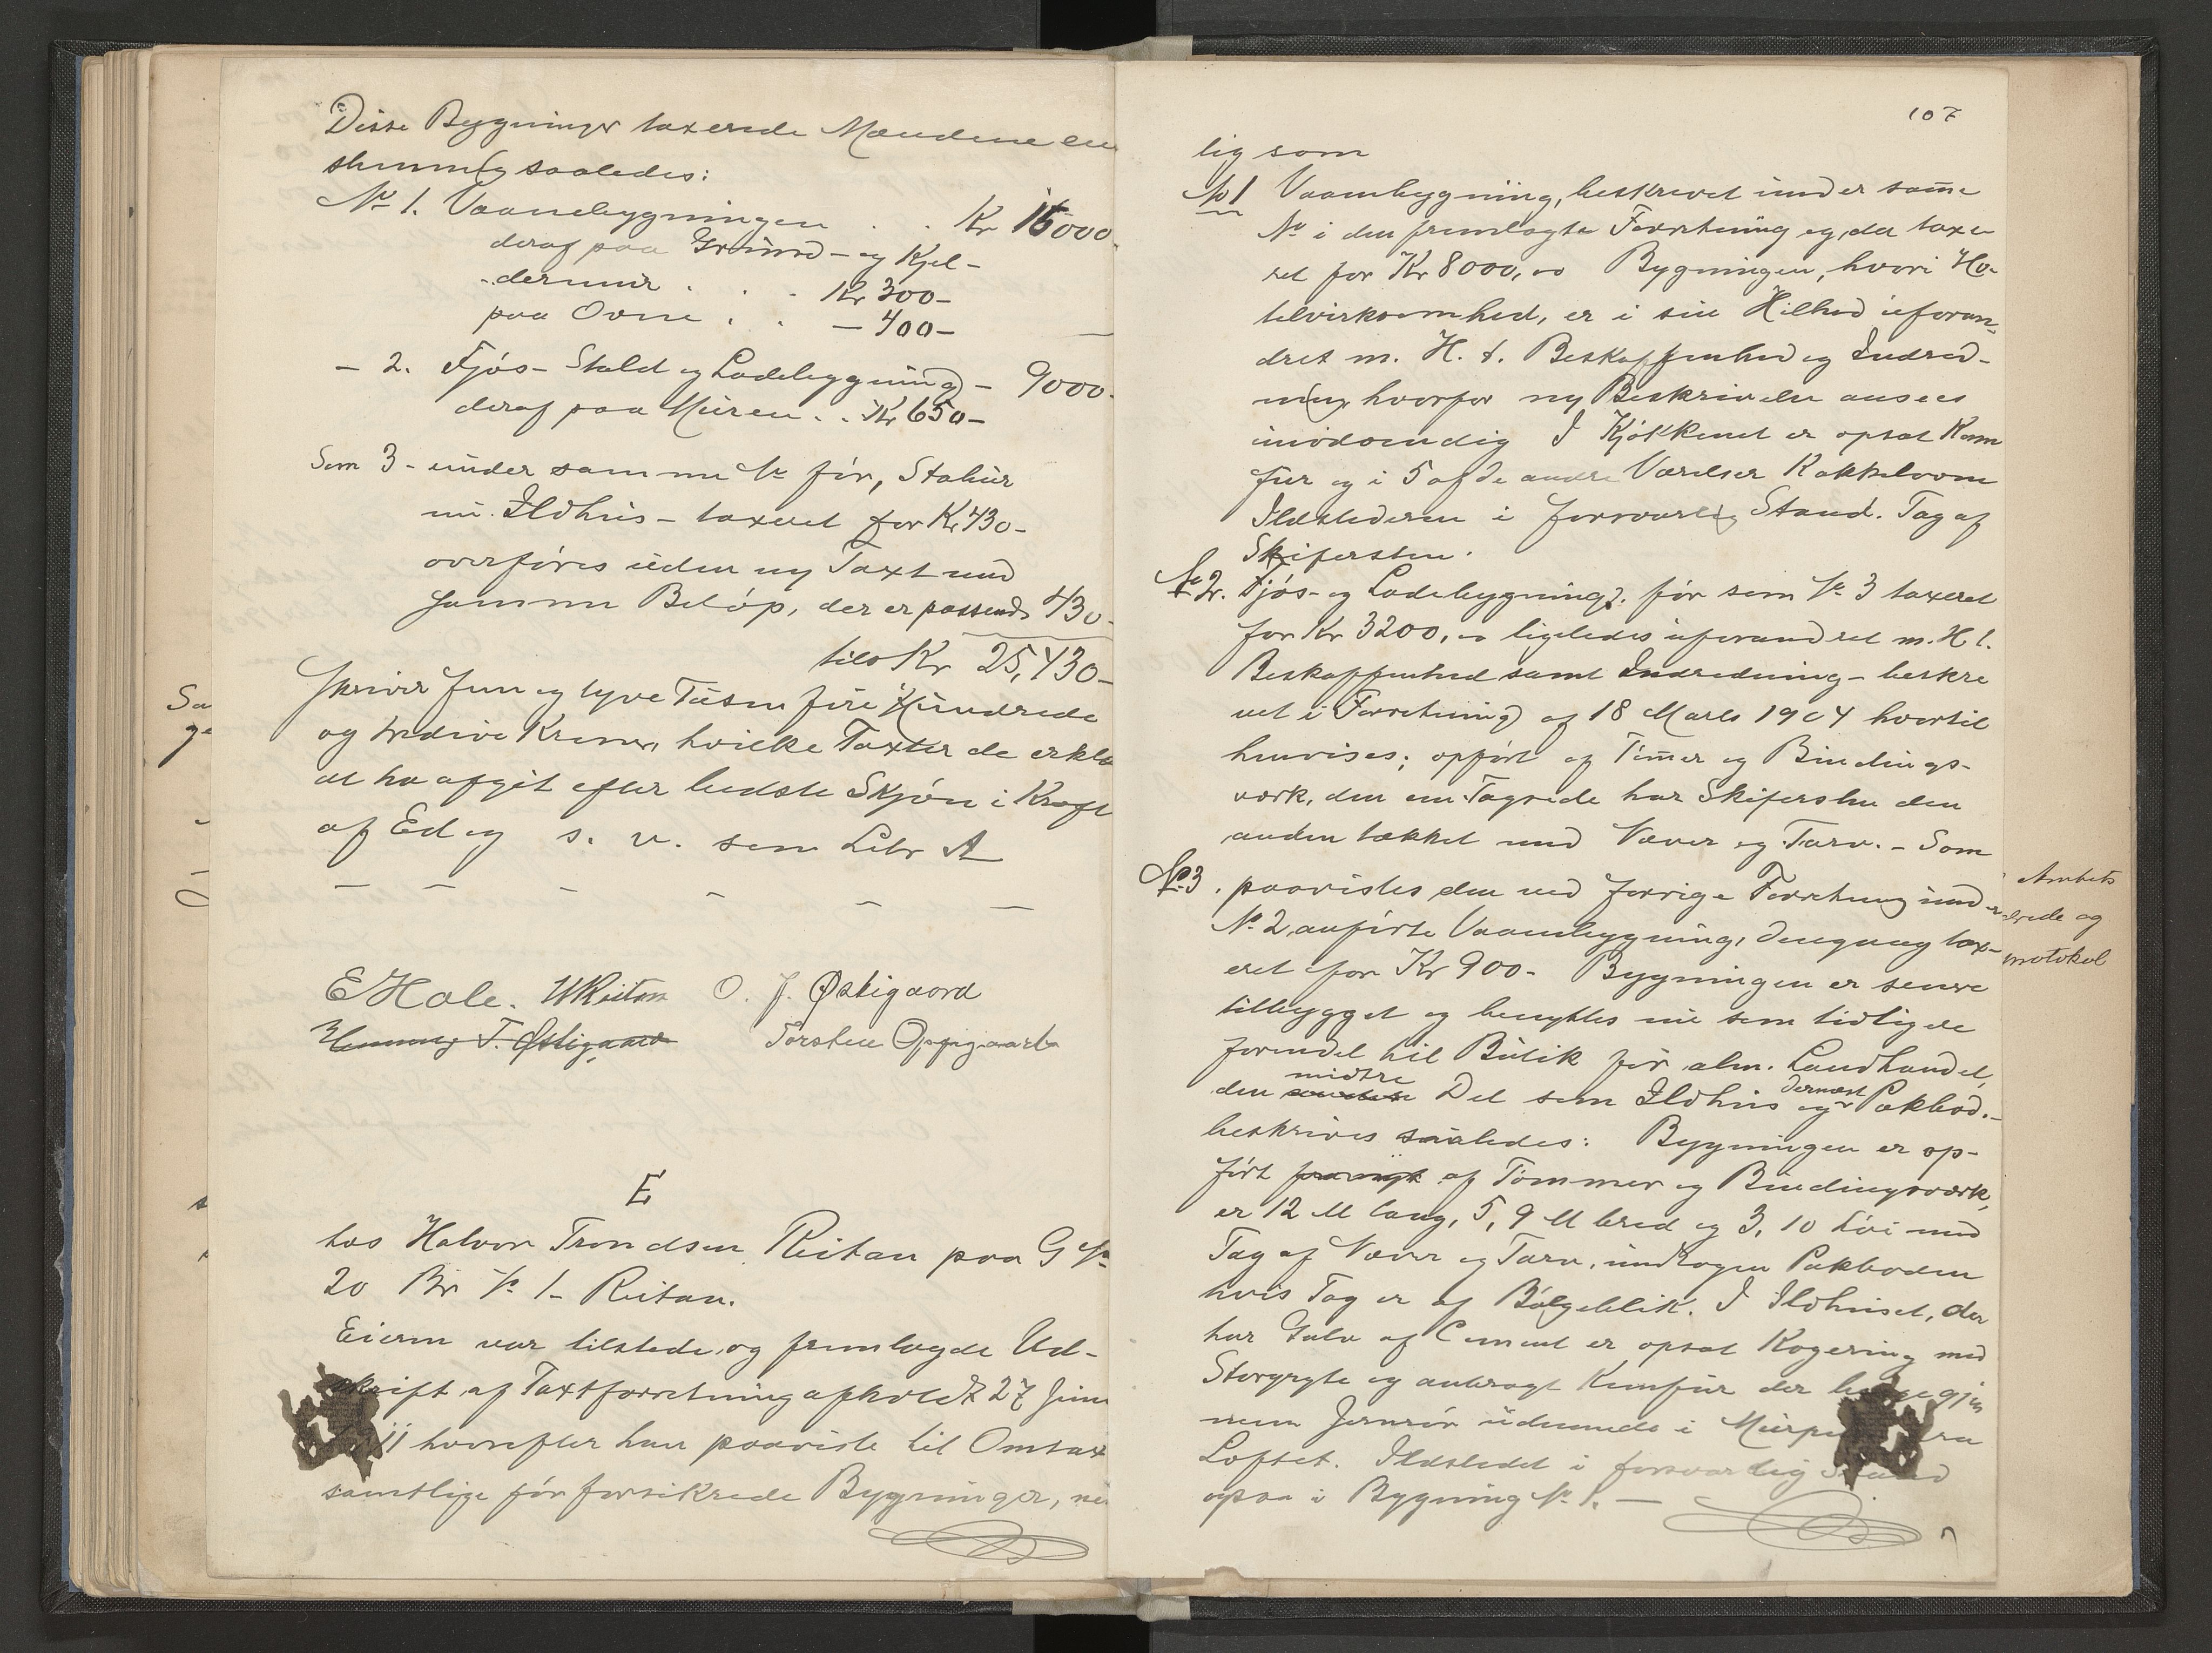 Disse Bygninger taxerede Mændene een
stemmig saaledes:
No 1. Vaanebygningen . . Kr 16000
deraf paa Grund- og Kjel-
dermur . . . Kr 300-
paa Ovne . . — 400-
- 2. Fjøs- Stald og Ladebygning - 9000.
deraf paa Muren . . Kr 650-
Som 3 - under samme No før, Stabur
nu Ildhus - taxeret for Kr 430-
overføres uden ny Taxt med
samme Beløp, der er passende 430-
tils Kr 25,430-
skriver fem og tyve Tusen fire Hundrede
og tredive Kroner, hvilke Taxter de erklæ
at ha afgit efter bedste Skjøn i Kraft
af Ed og s. v. som Litr A
E Hole. O. J. Østigaard
Henning T. Østigaard Torsten
E
hos Halvor Trondsen Reitan paa G No
20 Br No 1- Reitan.
Eieren var tilstede og fremlagde Ud-
skrift af Taxtforretning afholdt 27 Juni
11 hvorefter han paaviste til Omtax
samtlige før forsikrede Bygninger, ne
107
lig som
No 1 Vaanebygning, beskrevet under same
No i den fremlagte Forretning og da taxe
ret for Kr 8000,00 Bygningen, hvori Ho-
telvirksomhed, er i sin Hilhed uforan-
dret m. H. t. Beskaffenhed og Indred-
ning hvorfor ny Beskrivelse ansees
unødvendig I Kjøkkenet er opsat Kom
fur og i 5 af de andre Værelser Kakkelovne
Ildstederne i forsvarlig Stand. Tag af
Skifersten.
No 2. Fjøs- og Ladebygning, før som No 3 taxeret
for Kr 3200,00 ligeledes uforandret m. H t.
Beskaffenhed samt Indredning - beskre
vet i Forretning af 18 Marts 1904 hvortil
henvises; opført af Tømer og Bindings-
værk, den ene Tagside har Skifersten den
anden tækket med Næver og Tørv. - Som
No 3. paavistes den ved forrige Forretning under
No 2 anførte Vaanebygning, dengang tax-
eret for Kr 900- Bygningen er senere
tilbygget og benyttes nu som tidligere
forendel til Butik for alm. Landhandel,
midtre
den Del som Ildhus og dernæst Pakbod.-
beskrives saaledes: Bygningen er op-
ført af Tømmer og Bindingsværk,
er 12 M lang, 5,9 M bred og 3,10 høi med
Tag af Næver og Tørv, undtagen Pakboden
hvis Tag er af Bølgeblik. I Ildhuset, der
har Gulv af Cement er opsat Kogering med
Storgryte og anbragt Komfur der begge gjen
nem Jernrør udmunde i Murpibe fra
Loftet. Ildstedet i forsvarlig Stand
ogsaa i Bygning No 1. —
Sa
Ambets
brede og
protokol